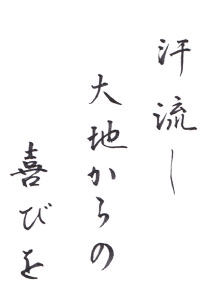 汗流し
大地からの
喜びを